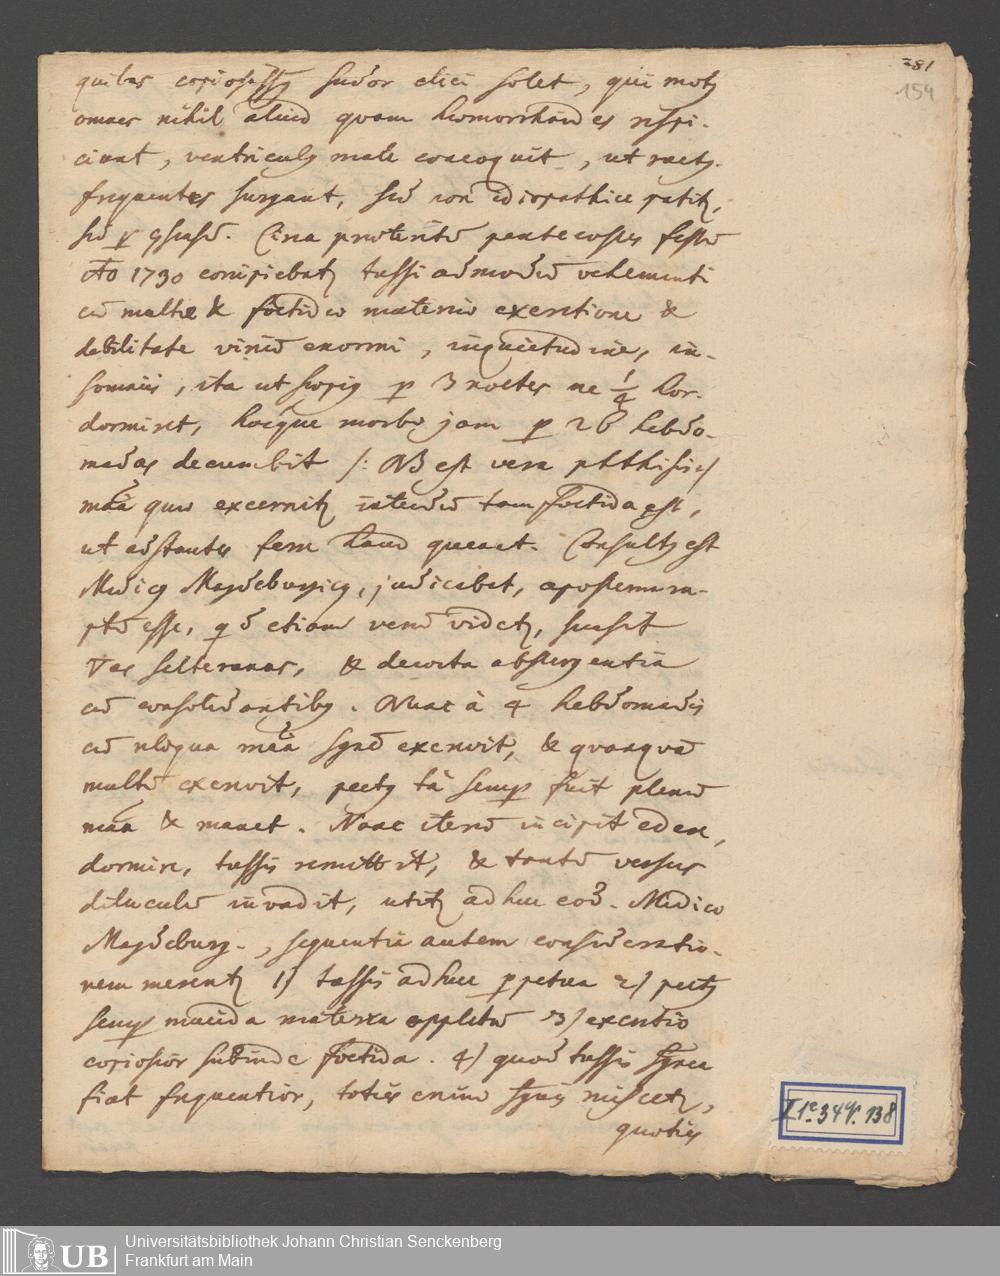 281
154
quibus copiosissimus sudor elici solet, qui motus
omnes nihil aliud quam hæmorrhoides respi-
ciunt, ventriculus male concoquit, ut ructus
frequentes surgant, sed non idiopathice patitur,
sed per consensum. Circa præteritum pentecostes festum
Ao 1730 corripiebatur tussi admodum vehementi
cum multæ & foetidæ materiæ excretione &
debilitate virium enormi, inquietudine, in-
somniis, ita ut sæpius per 3 noctes ne 1/4 hor.
dormiret, hocque morbo jam per 26 hebdo-
madas decumbit /: NB est vera phthisis /
mãa quæ excernitur interdum tam foetida est,
ut adstantes ferre haud queant. Consultus est
Medicus Magdeburgicus, judicabat, apostema ru-
ptum esse, quod etiam verum videtur, suasit
▽as selteranas, & decocta abstergentia
cum consolidantibus. Nunc à 4 hebdomadis
cum reliqua mãa sgnem excrevit, & quanquam
multum excrevit, pectus tñ semper fuit plenum
mãa & manet. Nunc iterum incipit edere,
dormire, tussis remittit, & tantum versus
diluculum invadit, utitur adhuc eod. Medico
Magdeburg., sequentia autem consideratio-
nem merentur 1) tussis adhuc perpetua 2) pectus
semper mucida materia oppletum 3) excretio
copiosior subinde foetida. 4) quod tussis sgnea
fiat frequentior, toties enim sgnis miscetur,
quoties
I 1e. 34 4r. 138
UB
Universitätsbibliothek Johann Christian Senckenberg
Frankfurt am Main